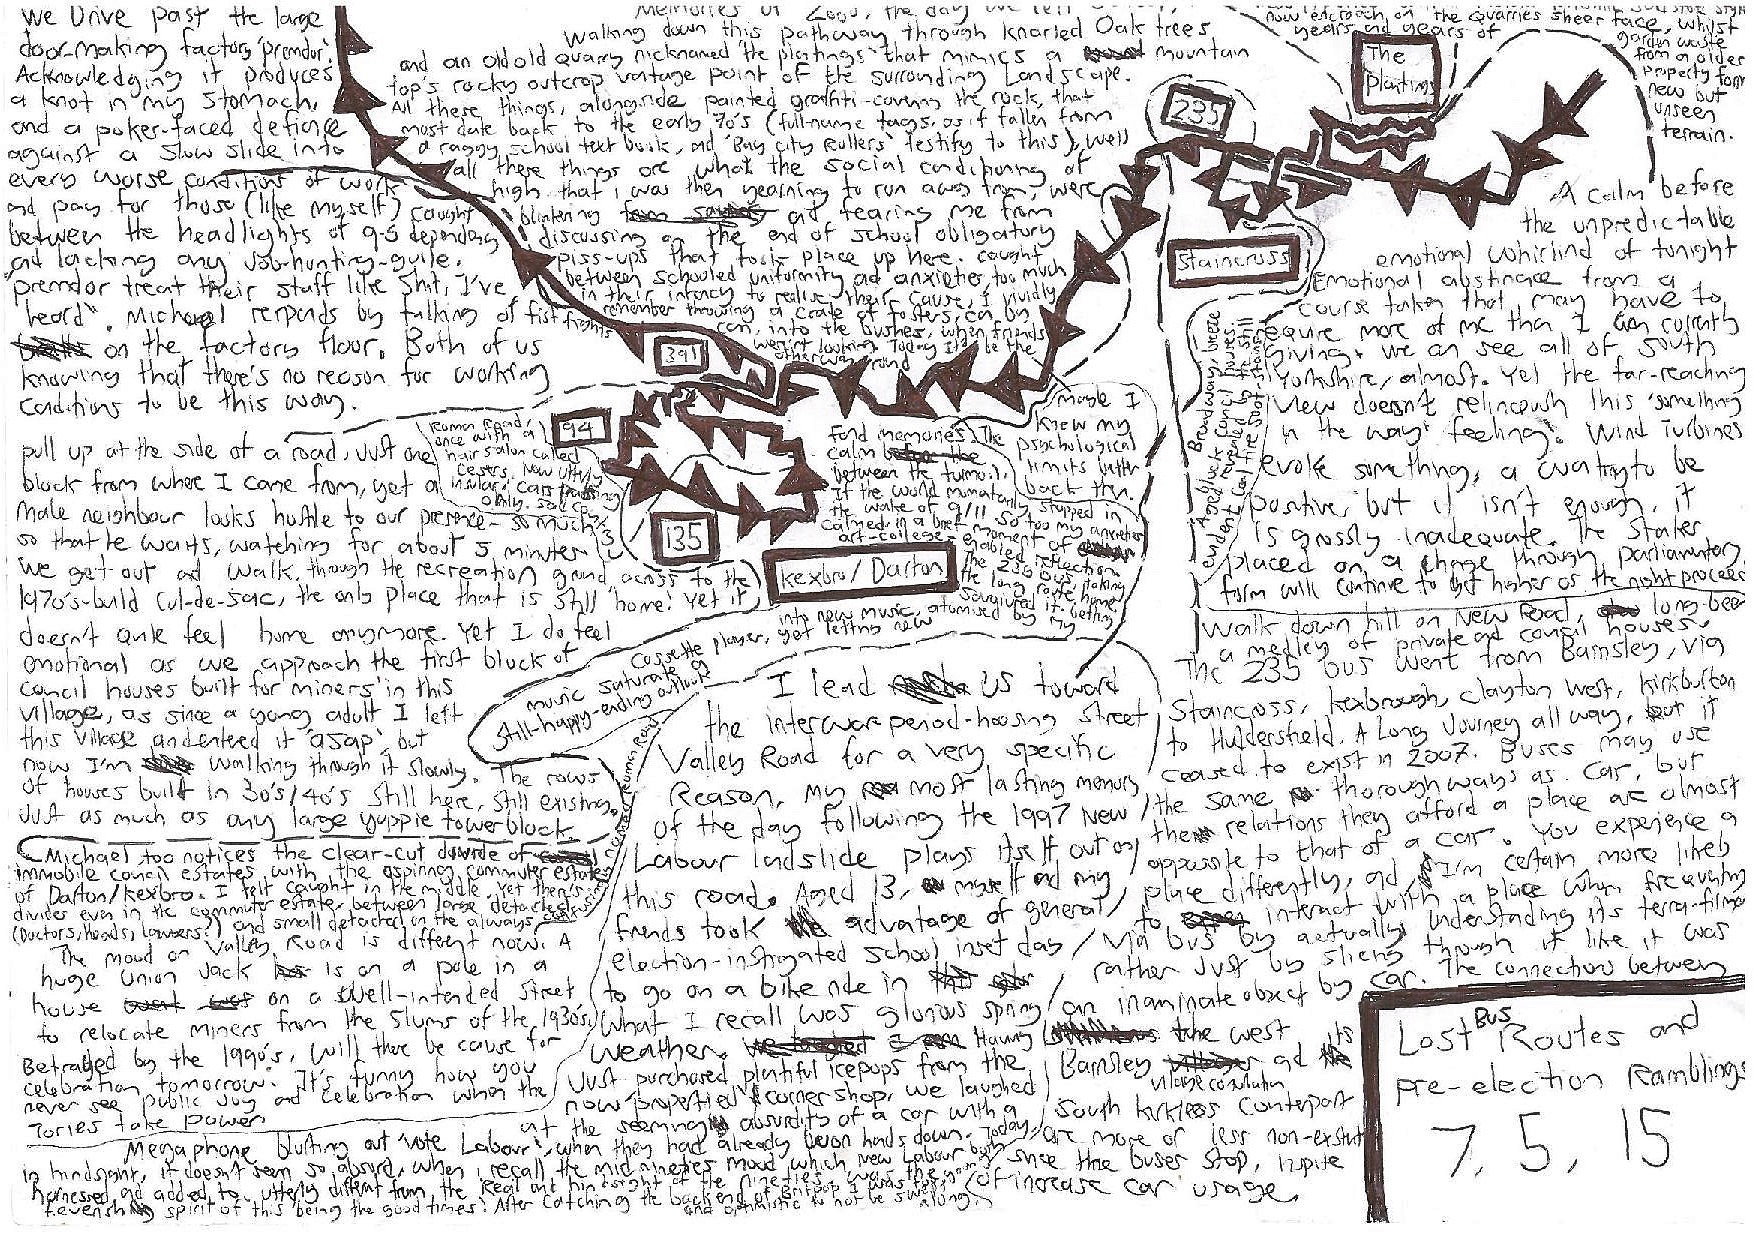 We Drive past the large
door-making factory 'premdor'.
Acknowledging it produces
a knot in my stomach,
and a poker-faced defiance
against a slow slide into
every worse conditions of work
and pay for those (like myself) caught
between the headlights of 9-5 dependency
and lacking any job-hunting-guile.
"premdor treat their staff like shit, I've
heard". Michael responds by talking of fist fights
on the factory floor. Both of us
knowing that there's no reason for working
conditions to be this way.
Memories of 2000, the day we left
Walking down this pathway through knarled Oak trees
and an old old quarry nicknamed 'the plaitings' that mimics a mountain
top's rocky outcrop vantage point of the surrounding Landscape.
All these things, alongside painted graffiti-covering the rock, that
most date back to the early 70's (full-name tags, as if fallen from
a raggy school text book, and 'Bay City Rollers' testify to this), well
all these things are what the social conditioning of
high that I was then yearning to run away from, were
blinkering and tearing me from
discussing on the end of school obligatory
piss-ups that took place up here. caught
between schooled uniformity and anxieties, too much
in their infancy to realise their cause, I vividly
remember throwing a crate of fosters, can by
can, into the bushes, when friends
weren't looking. Today it'd be the
other way round
now encroach on the quarries sheer face, whilst
years and years of
garden waste
from an older
property form
new but
unseen
terrain.
The
Plaitings
235
Staincross
391
94
135
Kexbro/Darton
A calm before
the unpredictable
emotional whirlwind of tonight
Emotional abstinence from a
course taken that may have to
require more of me than I am currently
giving. we can see all of South
Yorkshire, almost. Yet the far-reaching
view doesn't relinquish this 'something
in the way' feeling. Wind Turbines
evoke something, a wanting to be
positive, but it isn't enough, it
is grossly inadequate. The Stakes
placed on a change through parliamentary
form will continue to get higher as the night proceeds
Broadway: breeze
block council houses,
revealed by the still
evident coal fire soot stains
Roman Road,
once with a
hair salon called
Cesers. Now utterly
insular, cars passing
only.
maybe I
knew my
psychological
limits better
back then.
Fond memories. The
calm
between the turmoil.
If the world momentarily stopped in
the wake of 9/11 so too my anxieties
calmed in a brief moment of
art-college-enabled reflection
The 235 bus, taking
the long route home,
savoured it. getting
into new music, atomised by my
cassette player, yet letting new
music saturate a
still-happy-ending outlook
pull up at the side of a road, just one
block from where I came from, yet a
male neighbour looks hostile to our presence - so much
so that he waits, watching for about 5 minutes
We get out and walk, through the recreation ground across to the
1970's-build cul-de-sac, the only place that is still 'home'. Yet it
doesn't quite feel home anymore. Yet I do feel
emotional as we approach the first block of
council houses built for miners in this
village, as since a young adult I left
this village and entered it 'asap', but
now I'm walking through it slowly. The rows
of houses built in 30's/40's still here, still existing,
just as much as any large yuppie towerblock.
Michael too notices the clear-cut divide of
immobile council estates with the aspiring commuter estates
of Darton/Kexbro. I felt caught in the middle, yet there's a
divider even in the commuter estate, between large detached
(Doctors, Heads, Lawyers?) and small detached on the always
The mood on Valley Road is different now. A
huge union Jack is on a pole in a
house on a swell-intended street
to relocate miners from the slums of the 1930's.
Betrayed by the 1990's, will there be cause for
celebration tomorrow. It's funny how you
never see public joy and celebration when the
Tories take power
I lead us toward
the interwar period-housing street
Valley Road for a very specific
Reason, my most lasting memory
of the day following the 1997 New
Labour landslide plays itself out on
this road. Aged 13, myself and my
friends took advantage of general
election-instigated School inset day
to go on a bike ride in
What I recall was glorious spring
weather. Having
Just purchased plentiful icepops from the
now 'propertied' corner shop, we laughed
at the seemingly absurdity of a car with a
Megaphone blurting out 'vote Labour', when they had already won hands down. Today,
in hindsight, it doesn't seem so absurd, when I recall the mid nineties mood which New Labour both
harnessed and added to. utterly different from the
feverish spirit of this being the good times. After catching the back end of Britpop I was
and optimistic to not be swept
along.
Walk down hill on New Road, long-been
a medley of private and council houses.
The 235 bus went from Barnsley, via
Staincross, Kexbrough, Clayton West, Kirkburton
to Huddersfield. A Long Journey all way, but it
ceased to exist in 2007. Buses may use
the same thoroughways as car, but
the relations they afford a place are almost
opposite to that of a car. You experience a
place differently, and I'm certain more likely
to interact with a place when frequenting
via bus by actually understanding its terra-firma
rather just by slicing through it like it was
an inanimate object by car. The connections between
the west
Barnsley and its
village conurbation
South Kirklees counterpart
are more or less non-existent
since the buses stop, inspite
of increase car usage.
Lost Bus Routes and
pre-election Ramblings
7, 5, 15